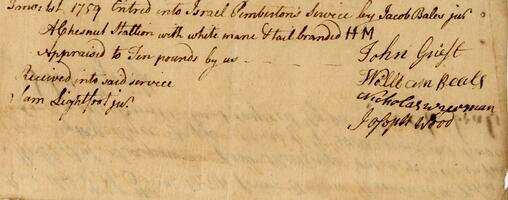 1759 Entred into Israel Pemberton's Service by Jacob Bales junr
A Chesnut Stallion with white mane & tail branded HM
Appraised to Ten pounds by us
John Griest
William Beals
Nicholas Wireman
Joseph Wood
Received into said service
Sam Lightfoot junr